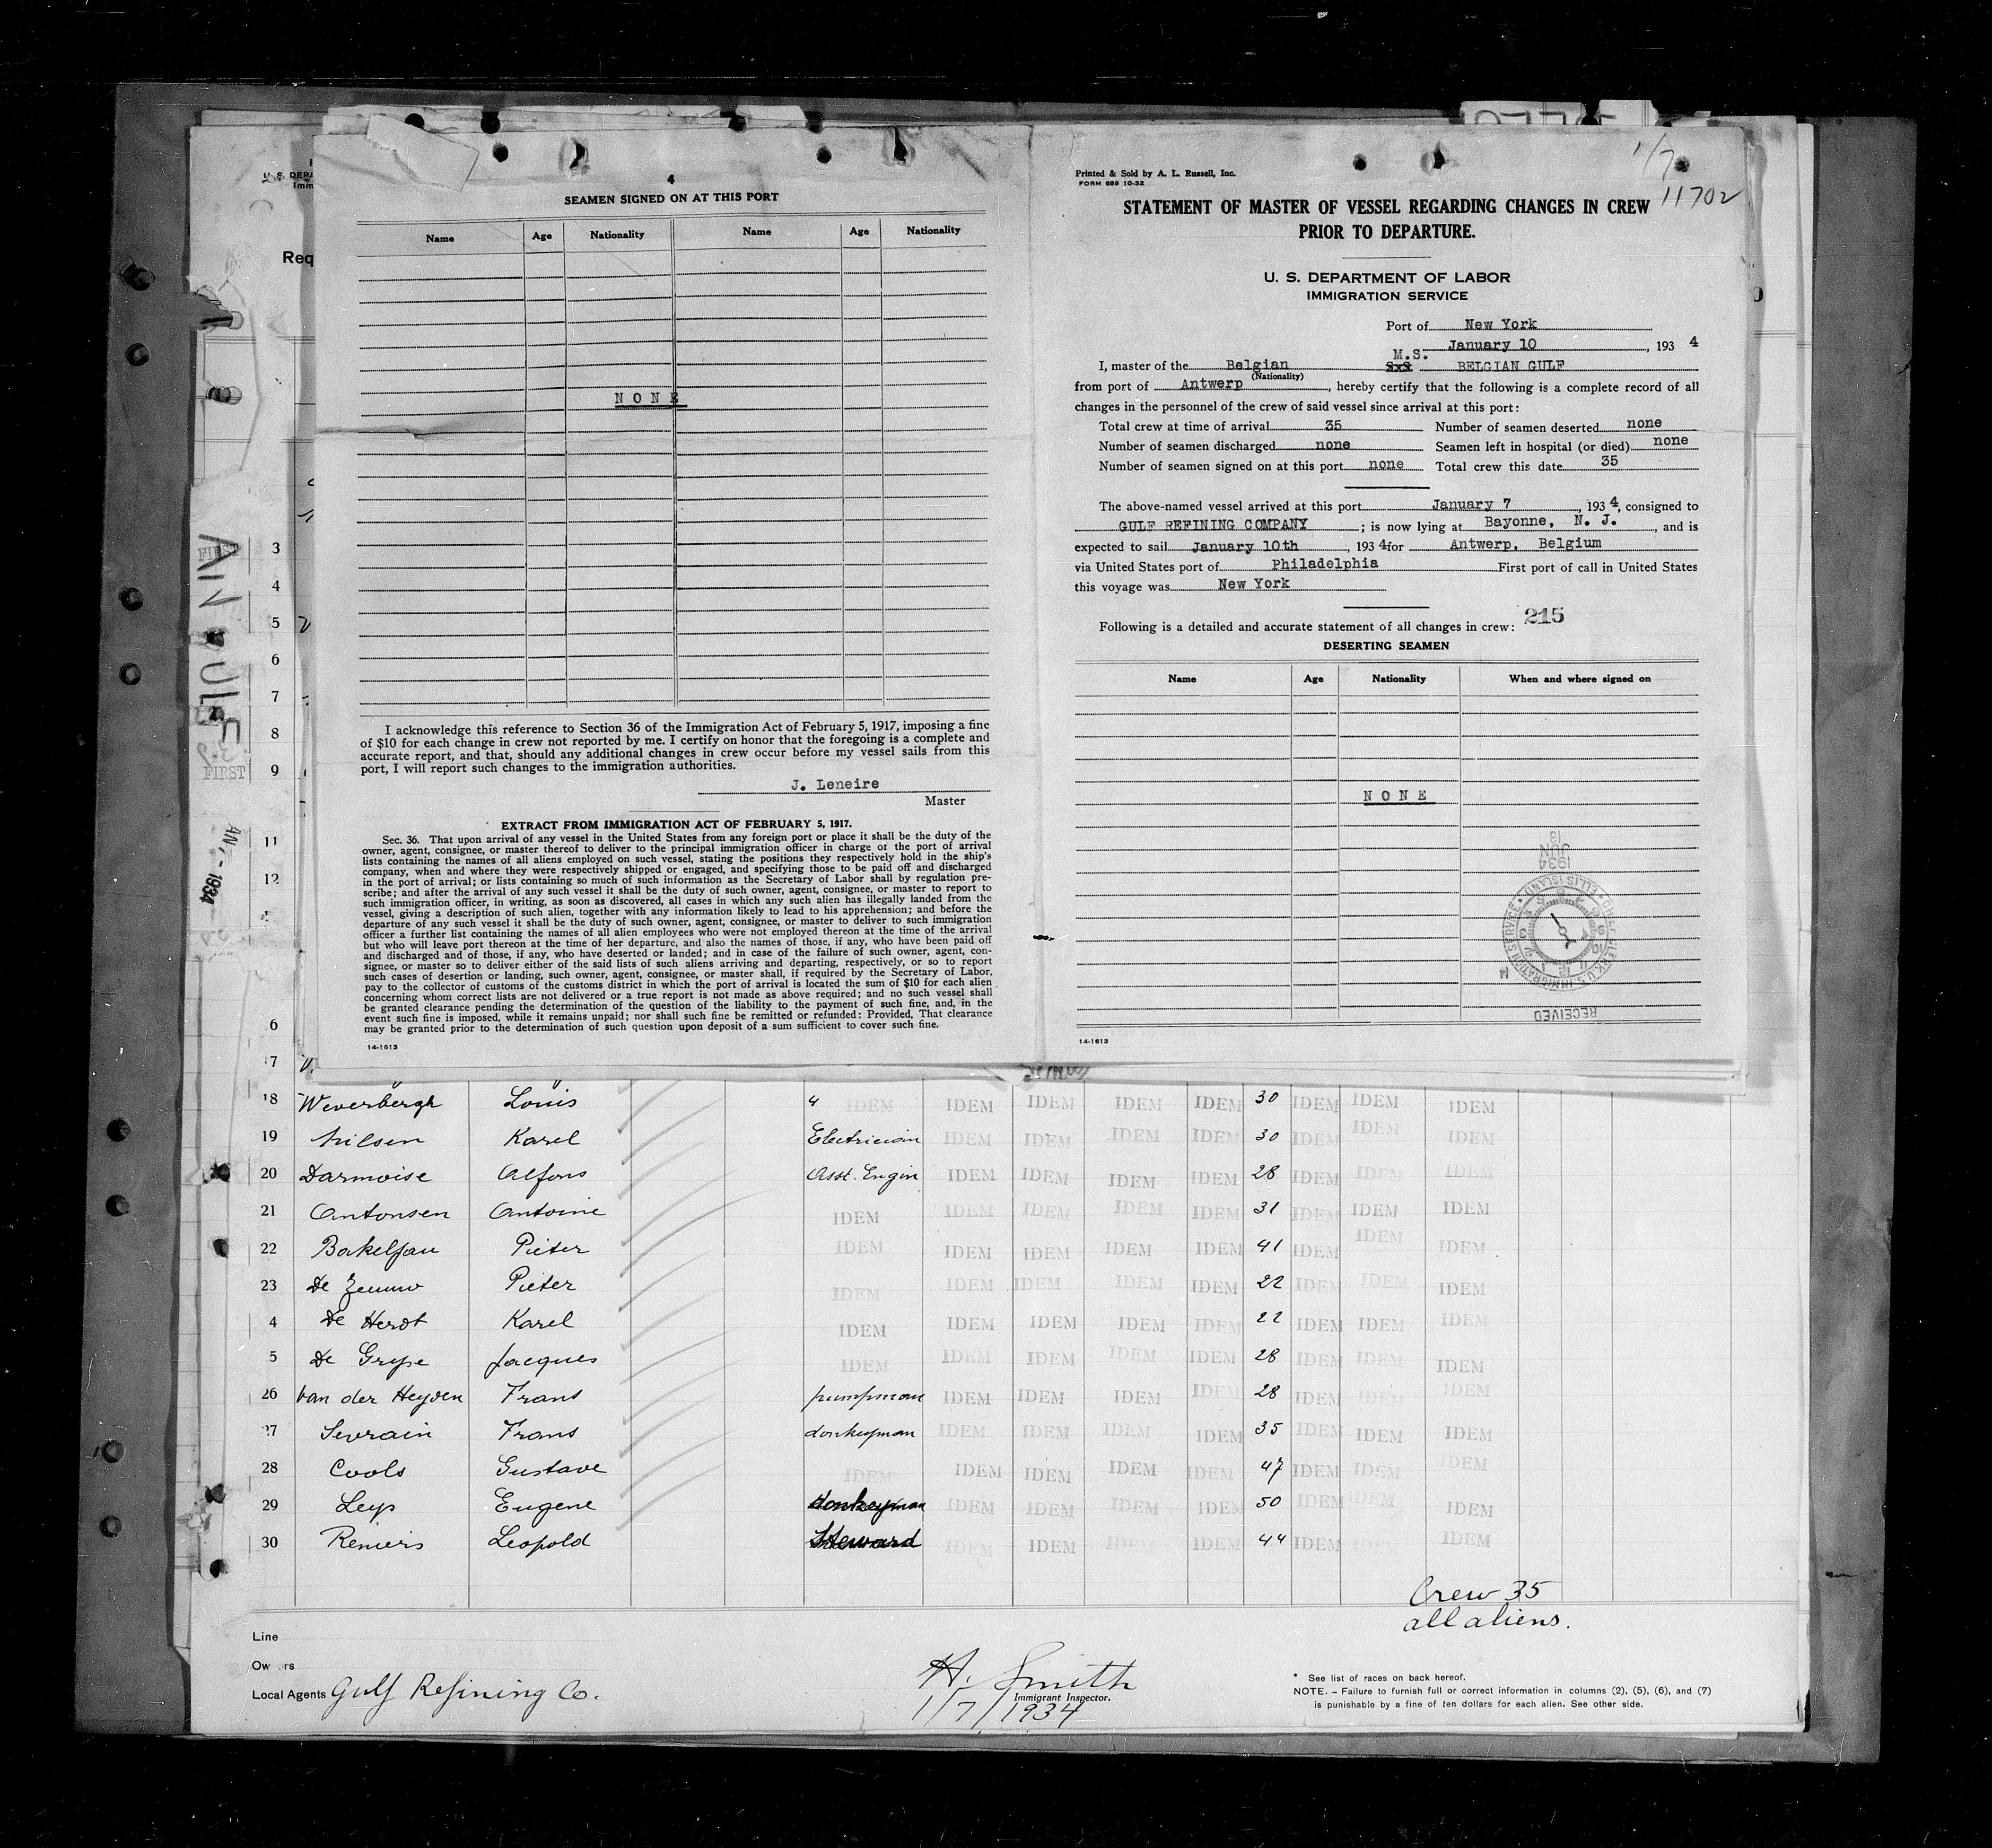 4
SEAMEN SIGNED ON AT THIS PORT
Name Age Nationality Name Age Nationality
NONE
I acknowledge this reference to Section 36 of the Immigration Act of February 5, 1917, imposing a fine
of $10 for each change in crew not reported by me. I certify on honor that the foregoing is a complete and
accurate report, and that, should any additional changes in crew occur before my vessel sails from this
port, I will report such changes to the immigration authorities.
J. Leneire
Master
EXTRACT FROM IMMIGRATION ACT OF FEBRUARY 5, 1917.
Sec. 36. That upon arrival of any vessel in the United States from any foreign port or place it shall be the duty of the
owner, agent, consignee, or master thereof to deliver to the principal immigration officer in charge of the port of arrival
lists containing the names of all aliens employed on such vessel, stating the positions they respectively hold in the ship's
company, when and where they were respectively shipped or engaged, and specifying those to be paid off and discharged
in the port of arrival; or lists containing so much of such information as the Secretary of Labor shall by regulation pre-
scribe; and after the arrival of any such vessel it shall be the duty of such owner, agent, consignee, or master to report to
such immigration officer, in writing, as soon as discovered, all cases in which any such alien has illegally landed from the
vessel, giving a description of such alien, together with any information likely to lead to his apprehension; and before the
departure of any such vessel it shall be the duty of such owner, agent, consignee, or master to deliver to such immigration
officer a further list containing the names of all alien employees who were not employed thereon at the time of the arrival
but who will leave port thereon at the time of her departure, and also the names of those, if any, who have been paid off
and discharged and of those, if any, who have deserted or landed; and in case of the failure of such owner, agent, con-
signee, or master so to deliver either of the said lists of such aliens arriving and departing, respectively, or so to report
such cases of desertion or landing, such owner, agent, consignee, or master shall, if required by the Secretary of Labor,
pay to the collector of customs of the customs district in which the port of arrival is located the sum of $10 for each alien
concerning whom correct lists are not delivered or a true report is not made as above required; and no such vessel shall
be granted clearance pending the determination of the question of the liability to the payment of such fine, and, in the
event such fine is imposed, while it remains unpaid; nor shall such fine be remitted or refunded: Provided, That clearance
may be granted prior to the determination of such question upon deposit of a sum sufficient to cover such fine.
14-1613
1/7
11702
Printed & Sold by A. L. Russell, Inc.
FORM 689 10-32
STATEMENT OF MASTER OF VESSEL REGARDING CHANGES IN CREW
PRIOR TO DEPARTURE.
U. S. DEPARTMENT OF LABOR
IMMIGRATION SERVICE
Port of New York
January 10, 1934
M.S.
I, master of the Belgian S.S. BELGIAN GULF
(Nationality)
from port of Antwerp, hereby certify that the following is a complete record of all
changes in the personnel of the crew of said vessel since arrival at this port:
Total crew at time of arrival 35 Number of seamen deserted none
Number of seamen discharged none Seamen left in hospital (or died) none
Number of seamen signed on at this port none Total crew this date 35
The above-named vessel arrived at this port January 7, 1934, consigned to
GULF REFINING COMPANY; is now lying at Bayonne, N. J., and is
expected to sail January 10th, 1934 for Antwerp, Belgium
via United States port of Philadelphia First port of call in United States
this voyage was New York
215
Following is a detailed and accurate statement of all changes in crew:
DESERTING SEAMEN
Name Age Nationality When and where signed on
NONE
1934
JUN
13
RECEIVED
14-1613
U. S. DEPA
Imm
Req
FIRST
FIRST
AN, - 1934
3
4
5
6
7
8
9
11
12
6
17
18 Weverbergh Louis " IDEM IDEM IDEM IDEM IDEM 30 IDEM IDEM IDEM
19 Nilsen Karel Electrician IDEM IDEM IDEM IDEM 30 IDEM IDEM IDEM
20 Darmoise Alfons Asst. Engin IDEM IDEM IDEM IDEM 28 IDEM IDEM IDEM
21 Antonsen Antoine IDEM IDEM IDEM IDEM IDEM 31 IDEM IDEM IDEM
22 Bakeljau Pieter IDEM IDEM IDEM IDEM IDEM 41 IDEM IDEM IDEM
23 De Zeeuw Pieter IDEM IDEM IDEM IDEM IDEM 22 IDEM IDEM IDEM
4 De Herdt Karel IDEM IDEM IDEM IDEM IDEM 22 IDEM IDEM IDEM
5 De Gryse Jacques IDEM IDEM IDEM IDEM IDEM 28 IDEM IDEM IDEM
26 Van der Heyden Frans pumpman IDEM IDEM IDEM IDEM 28 IDEM IDEM IDEM
27 Sevrain Frans donkeyman IDEM IDEM IDEM IDEM 35 IDEM IDEM IDEM
28 Cools Gustave IDEM IDEM IDEM IDEM IDEM 47 IDEM IDEM IDEM
29 Leys Eugene donkeyman IDEM IDEM IDEM IDEM 50 IDEM IDEM IDEM
30 Reniers Leopold Steward IDEM IDEM IDEM IDEM 44 IDEM IDEM IDEM
Crew 35
all aliens.
Line
Ow rs
Local Agents Gulf Refining Co.
H. Smith
Immigrant Inspector.
1/7/1934
* See list of races on back hereof.
NOTE. – Failure to furnish full or correct information in columns (2), (5), (6), and (7)
is punishable by a fine of ten dollars for each alien. See other side.